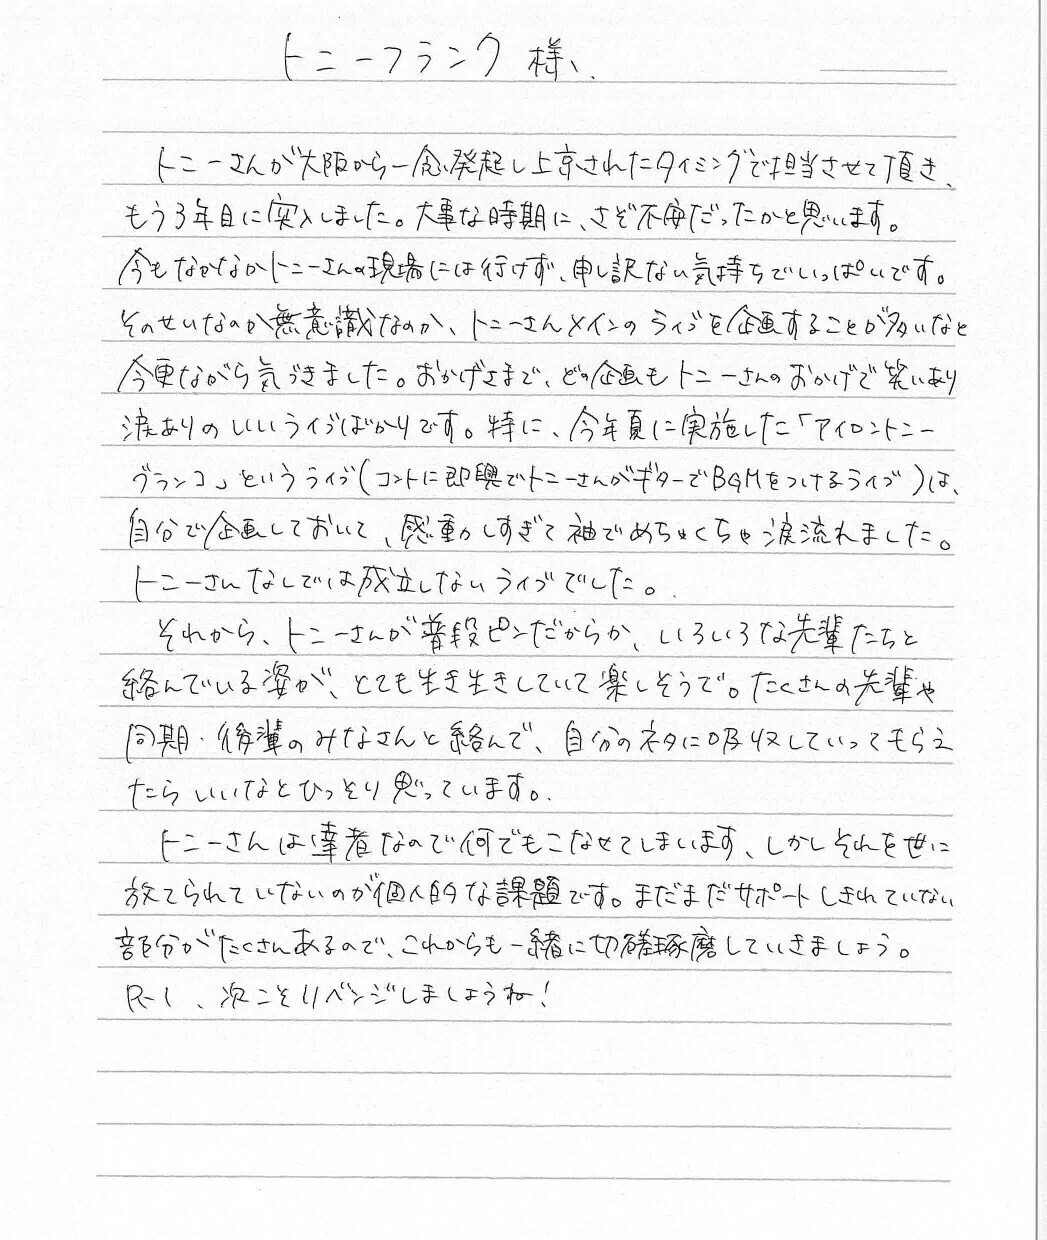 トニーフランク 様、
トニーさんが大阪から一念発起し上京されたタイミングで担当させて頂き、
もう3年目に突入しました。大事な時期に、さぞ不安だったかと思います。
今もなかなかトニーさんの現場には行けず、申し訳ない気持ちでいっぱいです。
そのせいなのか無意識なのか、トニーさんメインのライブを企画することが多いなと
今更ながら気づきました。おかげさまで、どの企画もトニーさんのおかげで笑いあり
涙ありのいいライブばかりです。特に、今年夏に実施した「アイロントニー
グランコ」というライブ(コントに即興でトニーさんがギターでBGMをつけるライブ)は、
自分で企画しておいて、感動しすぎて袖でめちゃくちゃ涙流れました。
トニーさんなしでは成立しないライブでした。
それから、トニーさんが普段ピンだからか、いろいろな先輩たちと
絡んでいる姿が、とても生き生きしていて楽しそうで。たくさんの先輩や
同期・後輩のみなさんと絡んで、自分のネタに吸収していってもらえ
たらいいなとひっそり思っています。
トニーさんは達者なので何でもこなせてしまいます、しかしそれを世に
放てられていないのが個人的な課題です。まだまだサポートしきれていない
部分がたくさんあるので、これからも一緒に切磋琢磨していきましょう。
R-1、次こそリベンジしましょうね!